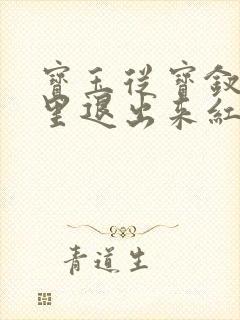 寶玉從寶釵
里退出來紅
青道生